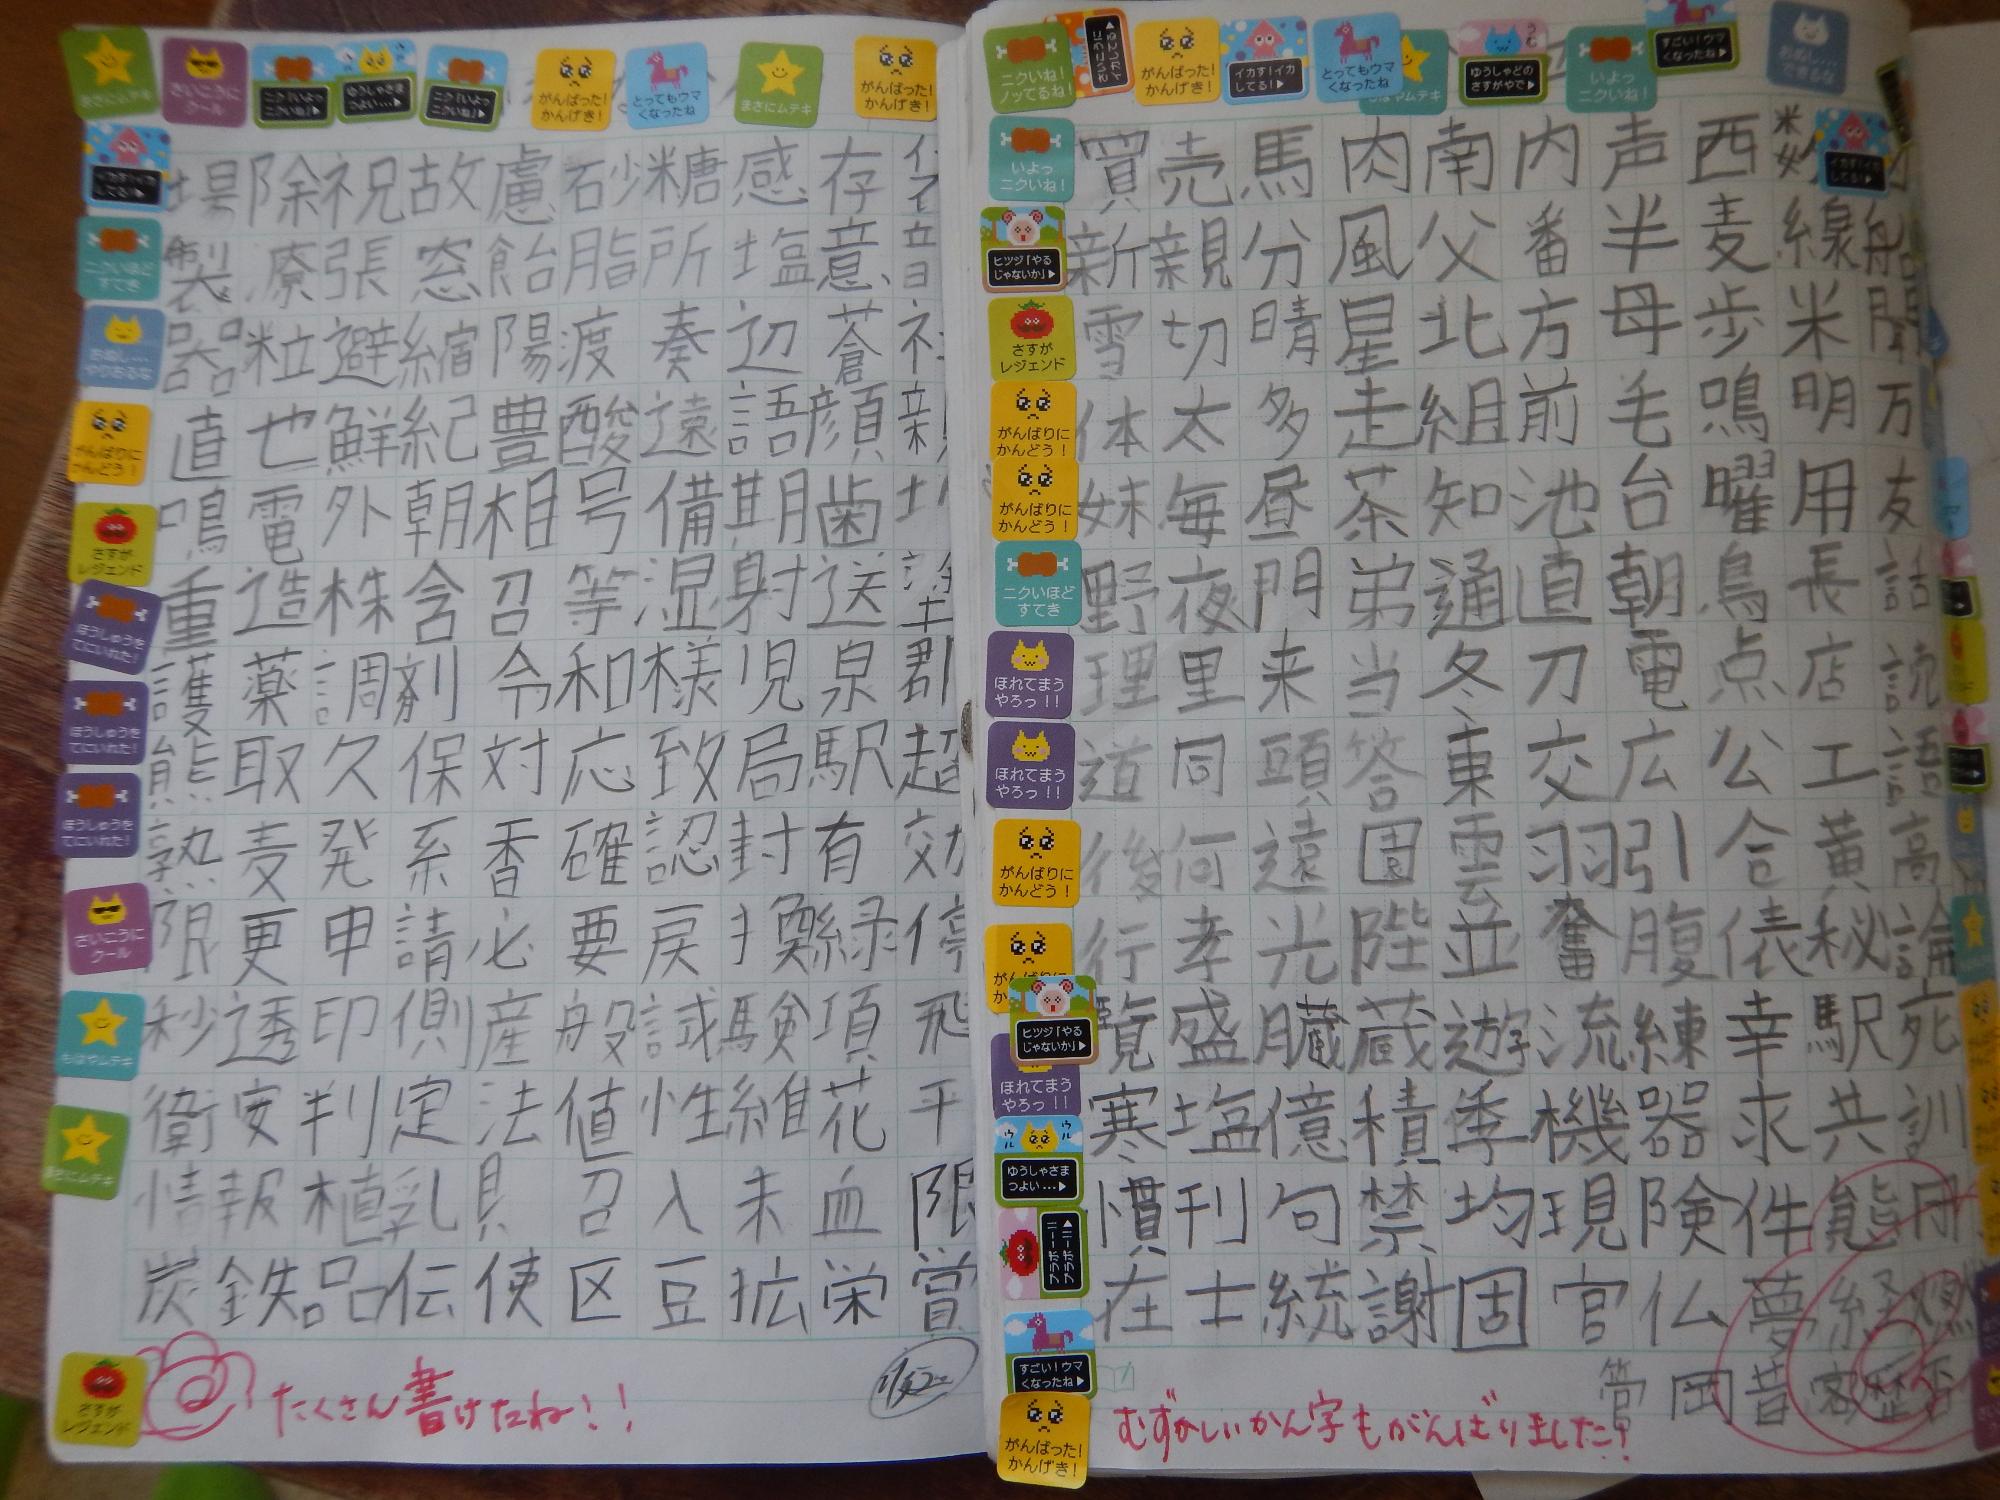 場除祝故慮砂糖感存
製療張窓飴脂所塩意
器粒避縮陽渡奏辺蒼
直也鮮紀豊酸遠語顔
鳴電外朝相号備期歯
重造株含召等湿射送
護薬調剤令和様児泉郡
熊取久保対応致局駅超
熟麦発系香確認封有効
限更申請必要戻換緑停
秒透印側産般試験項飛
衛安判定法値性維花平
情報植乳貝召入未血限
炭鉄品伝使区豆拡栄賞
たくさん書けたね!!
買売馬肉南内声西
新親分風父番半麦線船
雪切晴星北方母歩米聞
体太多走組前毛鳴明万
妹毎昼茶知池台曜用友
野夜門弟通直朝鳥長話
理里来当冬刀電点店読
道同頭答東交広公工語
後何遠園雲羽引合黄高
行考光陛並奮腹俵秘論
覧盛臓蔵遊流練幸駅死
寒塩億積季機器求共訓
慣刊句禁均現険件態
在士統謝固官仏夢経燃
管岡昔
むずかしいかん字もがんばりました!
まさにムテキ
さいこうに
クール
ニク「いよっ
ニクいね」
ゆうしゃさま
つよい…
ニク「いよっ
ニクいね」
がんばった!
かんげき!
とってもウマ
くなったね
まさにムテキ
がんばった!
かんげき!
ニクいほど
すてき
おぬし…
やりおるな
がんばりに
かんどう!
さすが
レジェンド
ほうしゅうを
てにいれた!
ほうしゅうを
てにいれた!
ほうしゅうを
てにいれた!
さいこうに
クール
もはやムテキ
まさにムテキ
さすが
レジェンド
ニクいね!
ノッてるね!
がんばった!
かんげき!
イカす!イカ
してる!
とってもウマ
くなったね
ゆうしゃどの
さすがやで
いよっ
ニクいね!
すごい!ウマ
くなったね
いよっ
ニクいね!
ヒツジ「やる
じゃないか」
さすが
レジェンド
がんばりに
かんどう!
がんばりに
かんどう!
ニクいほど
すてき
ほれてまう
やろっ!!
ほれてまう
やろっ!!
がんばりに
かんどう!
ヒツジ「やる
じゃないか」
ほれてまう
やろっ!!
ウル
ウル
ゆうしゃさま
つよい…
すごい!ウマ
くなったね
がんばった!
かんげき!